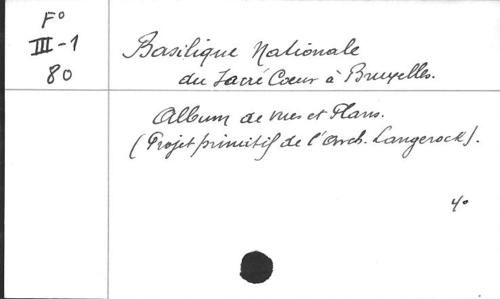 F°
III-1
80
Basilique Nationale
du Sacré Coeur à Bruxelles.
Album de vues et Plans.
(Projet primitif de l'Arch. Langerock).
4°